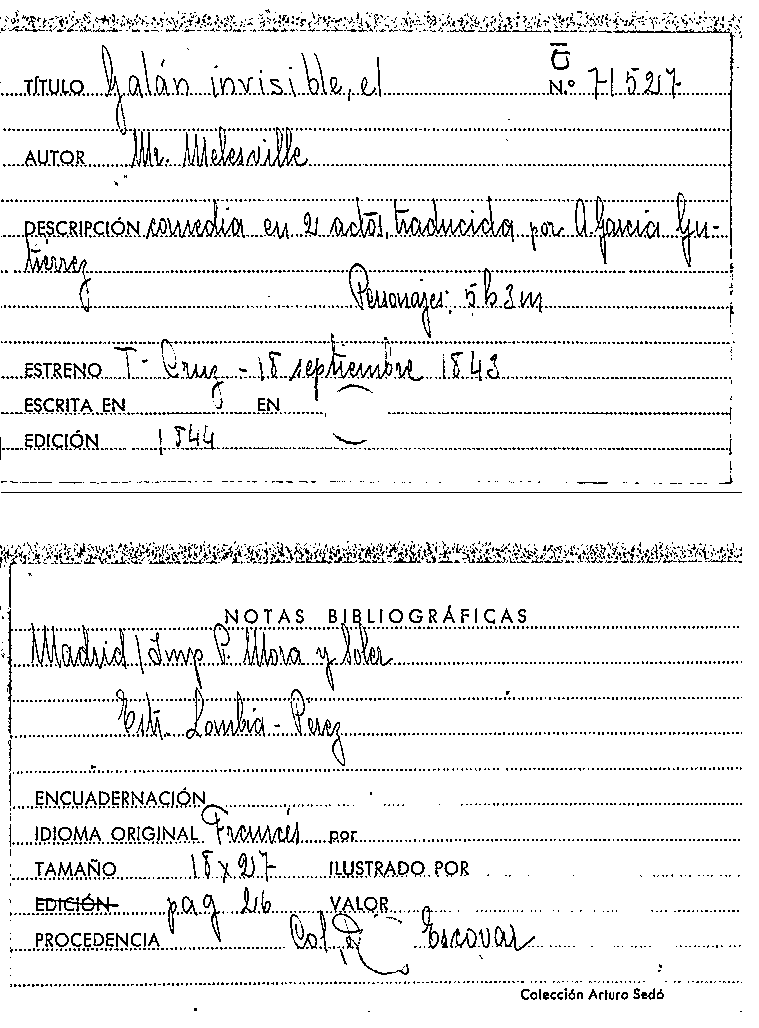 TÍTULO Galán invisible, el
N.º 71527
AUTOR Mr. Melesville
DESCRIPCIÓN comedia en 2 actos, traducida por A. García Gu-
tiérrez
Personajes: 5 h 3 m
ESTRENO T- Cruz - 18 septiembre 1843
ESCRITA EN EN
EDICIÓN 1844
NOTAS BIBLIOGRÁFICAS
Madrid / Imp P. Mora y Soler
Estr. Lombía - Pérez
ENCUADERNACIÓN
IDIOMA ORIGINAL Francés por
TAMAÑO 18 x 27 ILUSTRADO POR
EDICIÓN pag 26 VALOR
PROCEDENCIA Col, Escovar
Colección Arturo Sedó